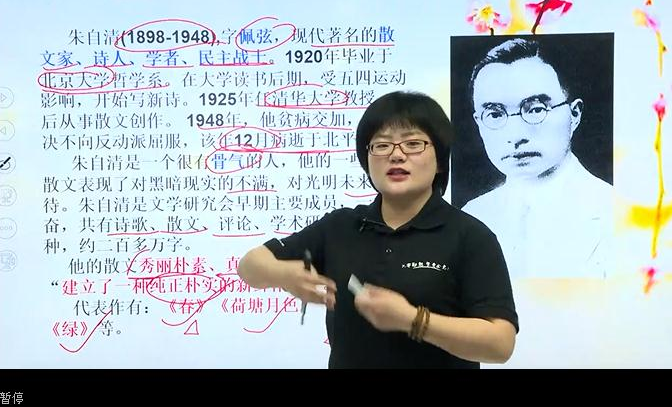 朱自清(1898-1948),字佩弦，现代著名的散
文家、诗人、学者、民主战士。1920年毕业于
北京大学哲学系。在大学读书后期，受五四运动
影响，开始写新诗。1925年任清华大学教授
后从事散文创作。1948年，他贫病交加，
决不向反动派屈服，该年12月病逝于北平
朱自清是一个很有骨气的人，他的一
散文表现了对黑暗现实的不满，对光明未来
待。朱自清是文学研究会早期主要成员，
奋，共有诗歌、散文、评论、学术研
种，约二百多万字。
他的散文秀丽朴素、真
“建立了一种纯正朴实的新鲜
代表作有：《春》《荷塘月色
《绿》等。
暂停